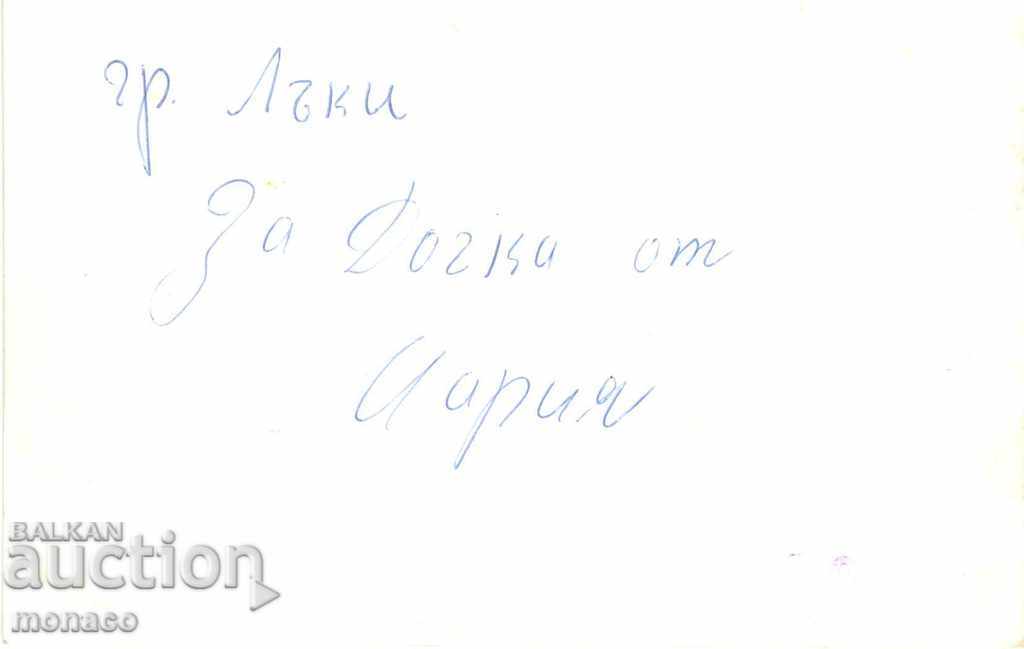 гр. Лъки
За Дочка от
Мария
BALKAN
auction
monaco